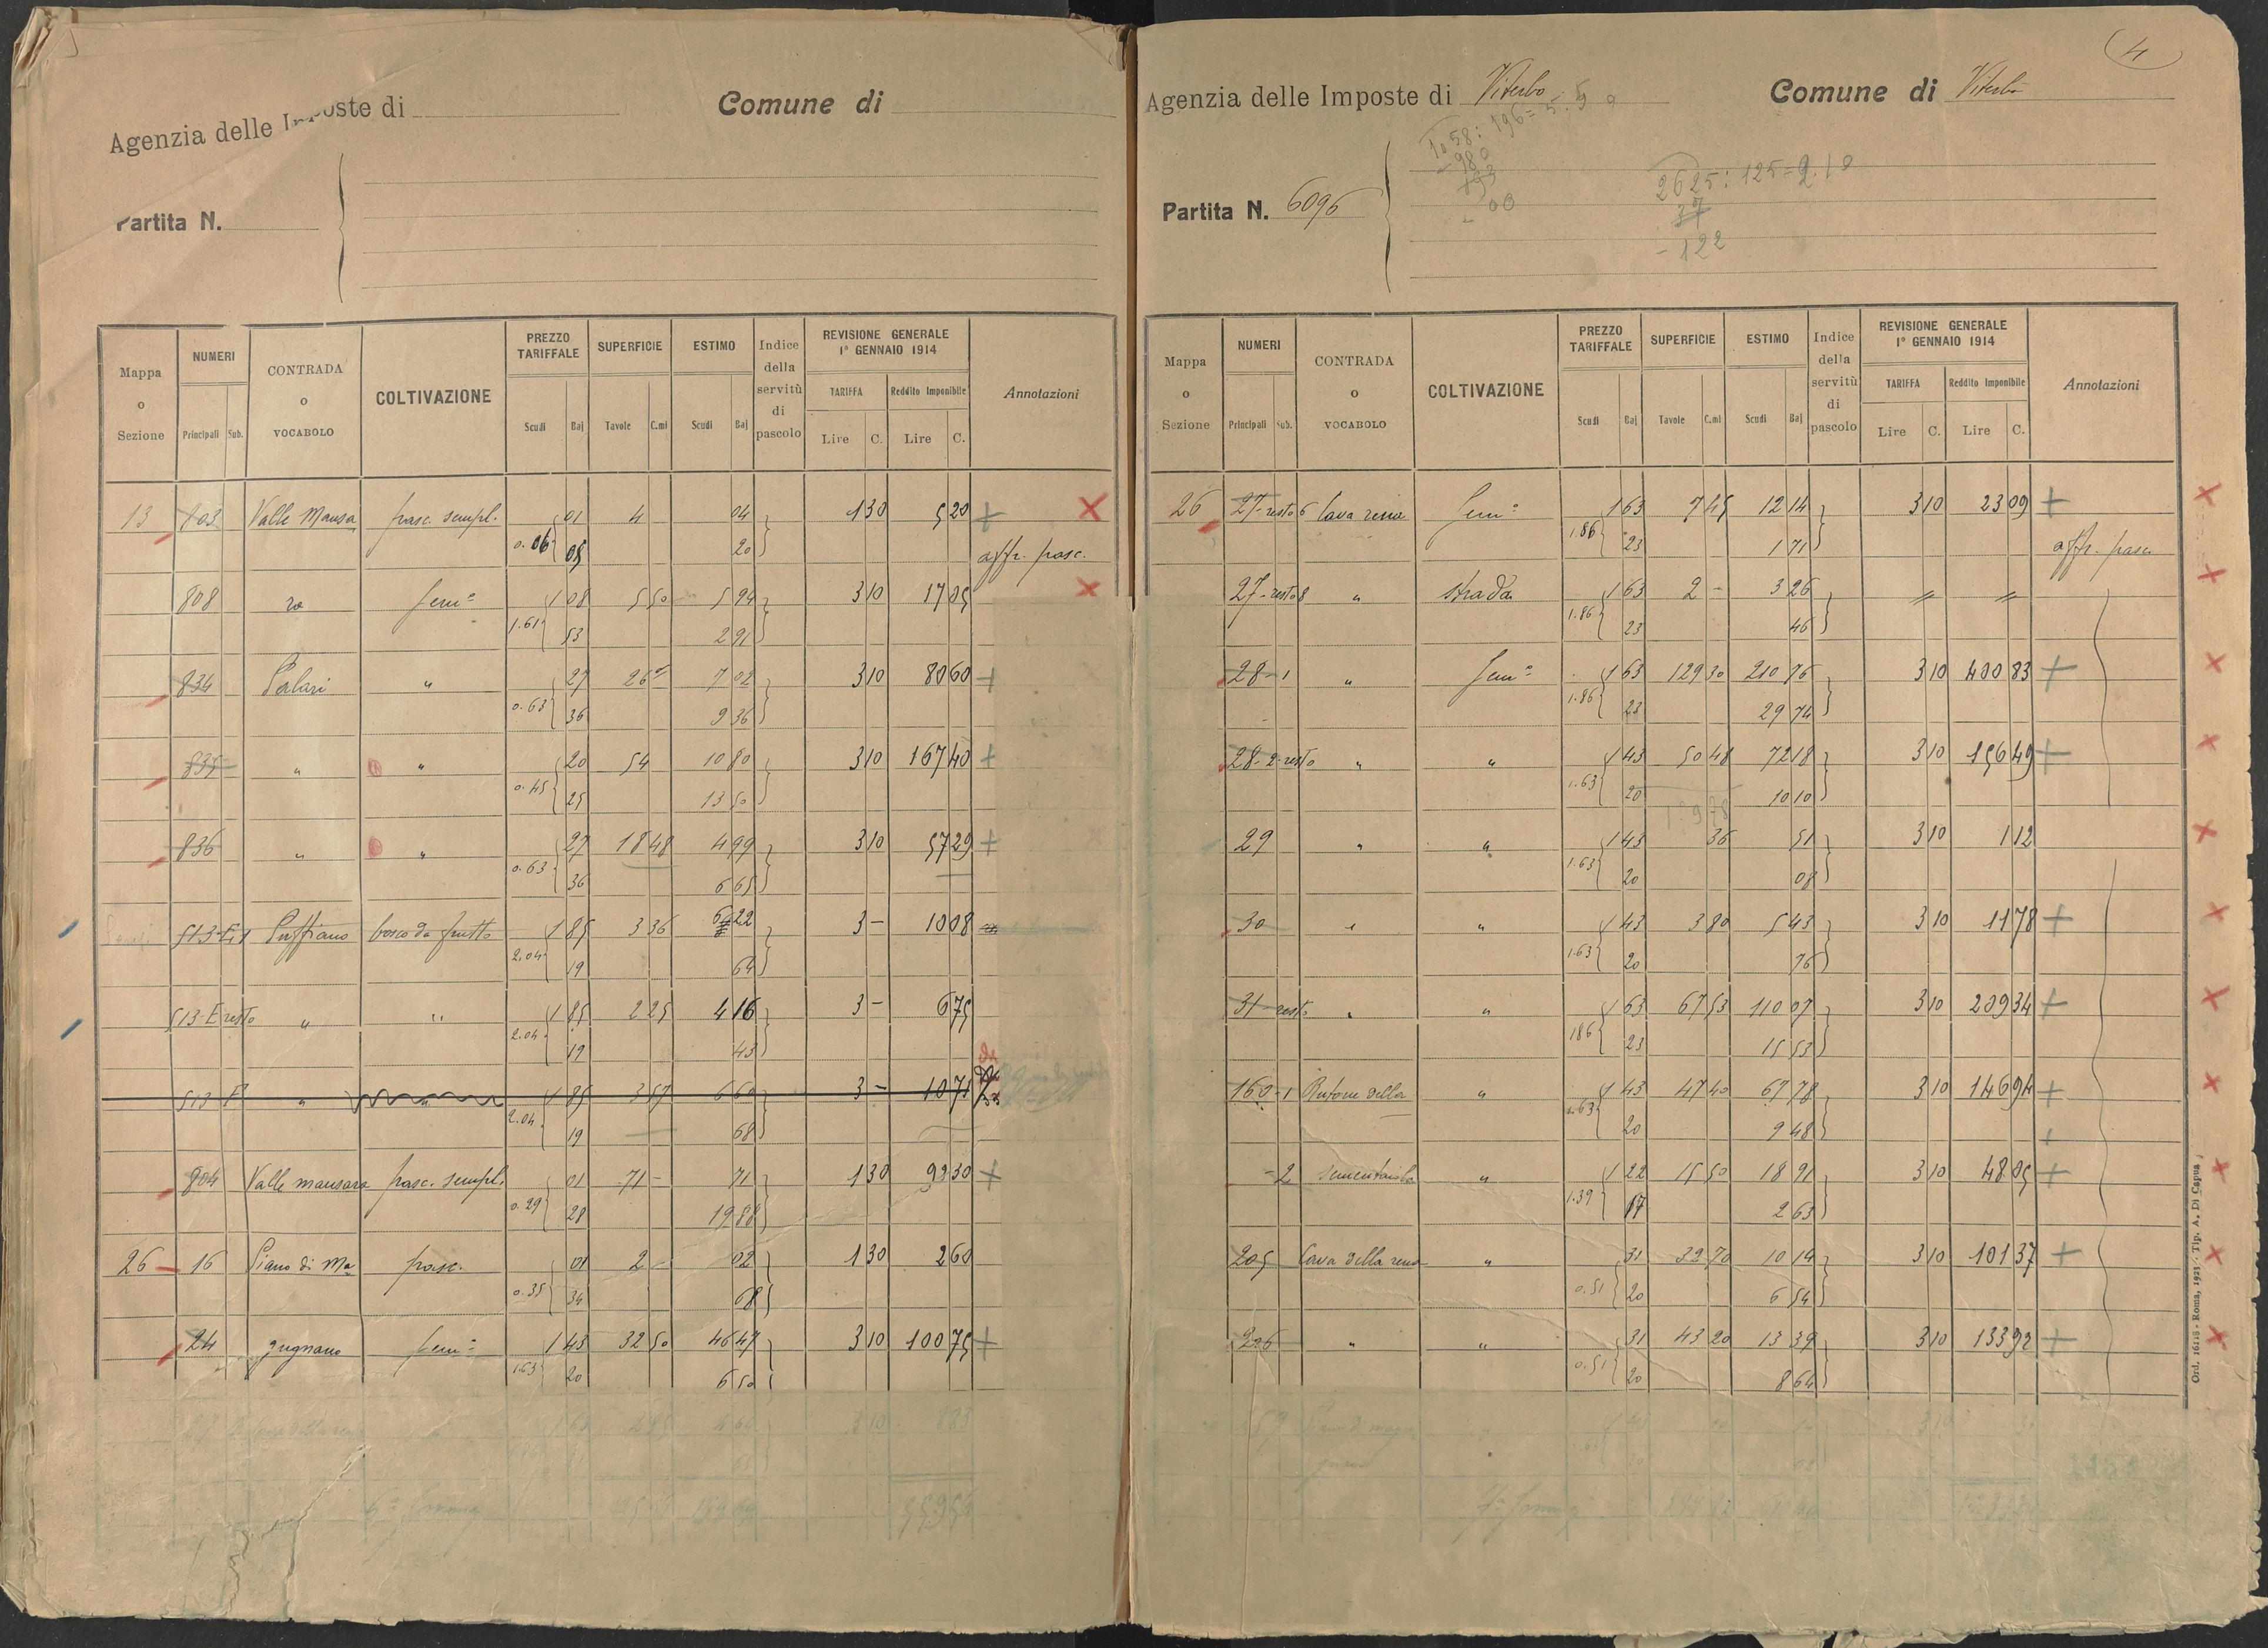 Agenzia delle Imposte di
Comune di
Partita N.
Mappa o Sezione | NUMERI Principali Sub. | CONTRADA o VOCABOLO | COLTIVAZIONE | PREZZO TARIFFALE Scudi Baj | SUPERFICIE Tavole C.mi | ESTIMO Scudi Baj | Indice della servitù di pascolo | REVISIONE GENERALE 1° GENNAIO 1914 TARIFFA Lire C. Reddito Imponibile Lire C. | Annotazioni
13 803 Valle Mausa pasc. sempl. 01 4 04 1 30 5 20 +
0.06 05 20 affr. pasc.
808 Sem° 1 08 5 50 5 94 3 10 17 05
1.61 53 2 91
834 Palari " 27 26 7 02 3 10 80 60 +
0.63 36 9 36
835 " " 20 54 10 80 3 10 167 40 +
0.45 25 13 50
836 " " 27 18 48 4 99 3 10 57 29 +
0.63 36 6 65
513-E1 bosco da frutto 1 85 3 36 6 22 3 - 10 08
2.04 19 64
513-E resto " " 1 85 2 25 4 16 3 - 6 75
2.04 19 43
513 " " 1 85 3 57 6 60 3 - 10 71
2.04 19 68
804 Valle mausara pasc. sempl. 01 71 - 71 1 30 92 30 +
0.29 28 19 88
26 16 Piano di Ma pasc. 01 2 - 02 1 30 2 60
0.35 34 68
24 gugnano Sem° 1 43 32 50 46 47 3 10 100 75 +
1.63 20 6 50
4
Agenzia delle Imposte di Viterbo
Comune di Viterbo
1058:196=5.
980
2625:125=2.10
-122
Partita N. 6096
Mappa o Sezione | NUMERI Principali Sub. | CONTRADA o VOCABOLO | COLTIVAZIONE | PREZZO TARIFFALE Scudi Baj | SUPERFICIE Tavole C.mi | ESTIMO Scudi Baj | Indice della servitù di pascolo | REVISIONE GENERALE 1° GENNAIO 1914 TARIFFA Lire C. Reddito Imponibile Lire C. | Annotazioni
26 27-resto 6 Cava rena Sem° 1 63 7 45 12 14 3 10 23 09 +
1.86 23 1 71 affr. pasc.
27-resto 8 " strada 1 63 2 - 3 26
1.86 23 46
28-1 " Sem° 1 63 129 30 210 76 3 10 400 83 +
1.86 23 29 74
28-2-resto " " 1 43 50 48 72 18 3 10 156 49 +
1.63 20 10 10
29 " " 1 43 36 51 3 10 1 12
1.63 20 08
30 " " 1 43 3 80 5 43 3 10 11 78 +
1.63 20 76
31-resto " " 1 63 67 53 110 07 3 10 209 34 +
1.86 23 15 53
160-1 della " 1 43 47 40 67 78 3 10 146 94 +
1.63 20 9 48
-2 " 1 22 15 50 18 91 3 10 48 05 +
1.39 17 2 63
205 Cava della rena " 31 32 70 10 14 3 10 101 37 +
0.51 20 6 54
206 " " 31 43 20 13 39 3 10 133 92 +
0.51 20 8 64
Ord. 16118 - Roma, 1923 - Tip. A. Di Capua